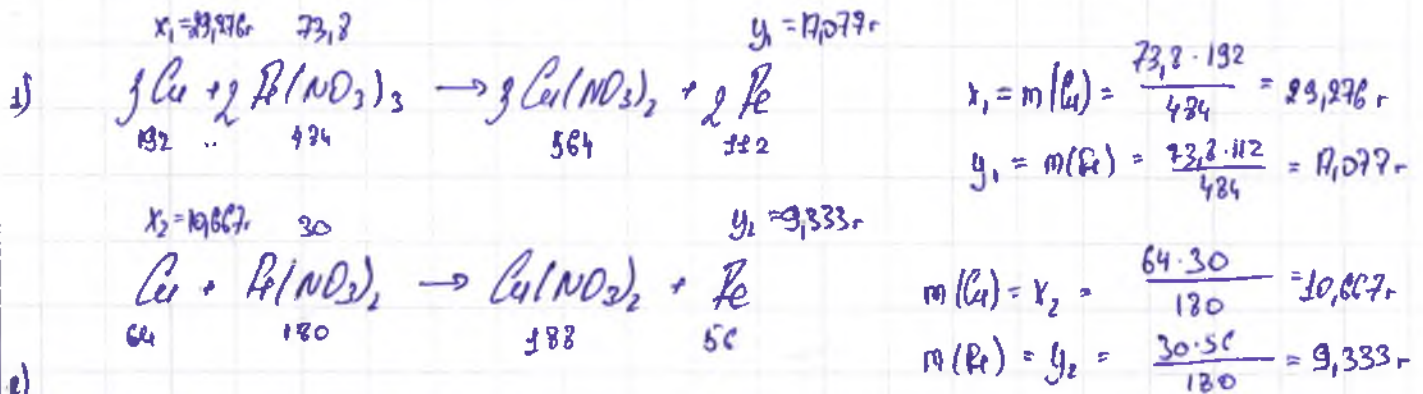 x₁=29,276г 73,8 y₁=17,077г
1) 3Cu + 2Fe(NO₃)₃ → 3Cu(NO₃)₂ + 2Fe
192 .. 484 564 112
x₁ = m(Cu) = 73,8·192/484 = 29,276г
y₁ = m(Fe) = 73,8·112/484 = 17,077г
x₂=10,667г 30 y₂=9,333г
Cu + Fe(NO₃)₂ → Cu(NO₃)₂ + Fe
64 180 188 56
m(Cu) = x₂ = 64·30/180 = 10,667г
m(Fe) = y₂ = 30·56/180 = 9,333г
2)